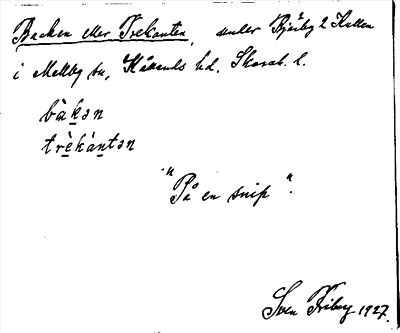 Backen eller Trekanten, under Bjärby 2 Hallen
i Mellby sn, Kållands hd. Skarab. l.
bàkən
trèkàntən
"På en snip".
Sven Friberg 1927.